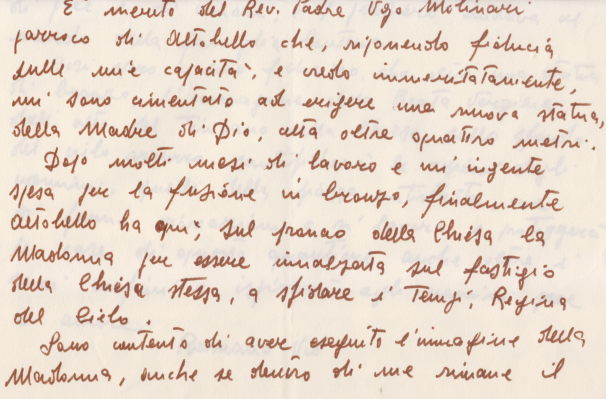 E' merito del Rev. Padre Ugo Molinari
parroco di Altobello che, riponendo fiducia
sulle mie capacità, e credo immeritatamente,
mi sono cimentato ad erigere una nuova statua,
della Madre di Dio, alta oltre quattro metri.
Dopo molti mesi di lavoro e un'ingente
spesa per la fusione in bronzo, finalmente
Altobello ha qui, sul fianco della Chiesa la
Madonna per essere innalzata sul fastigio
della Chiesa stessa, a sfidare i Tempi, Regina
del Cielo.
Sono contento di aver eseguito l'immagine della
Madonna, anche se dentro di me rimane il